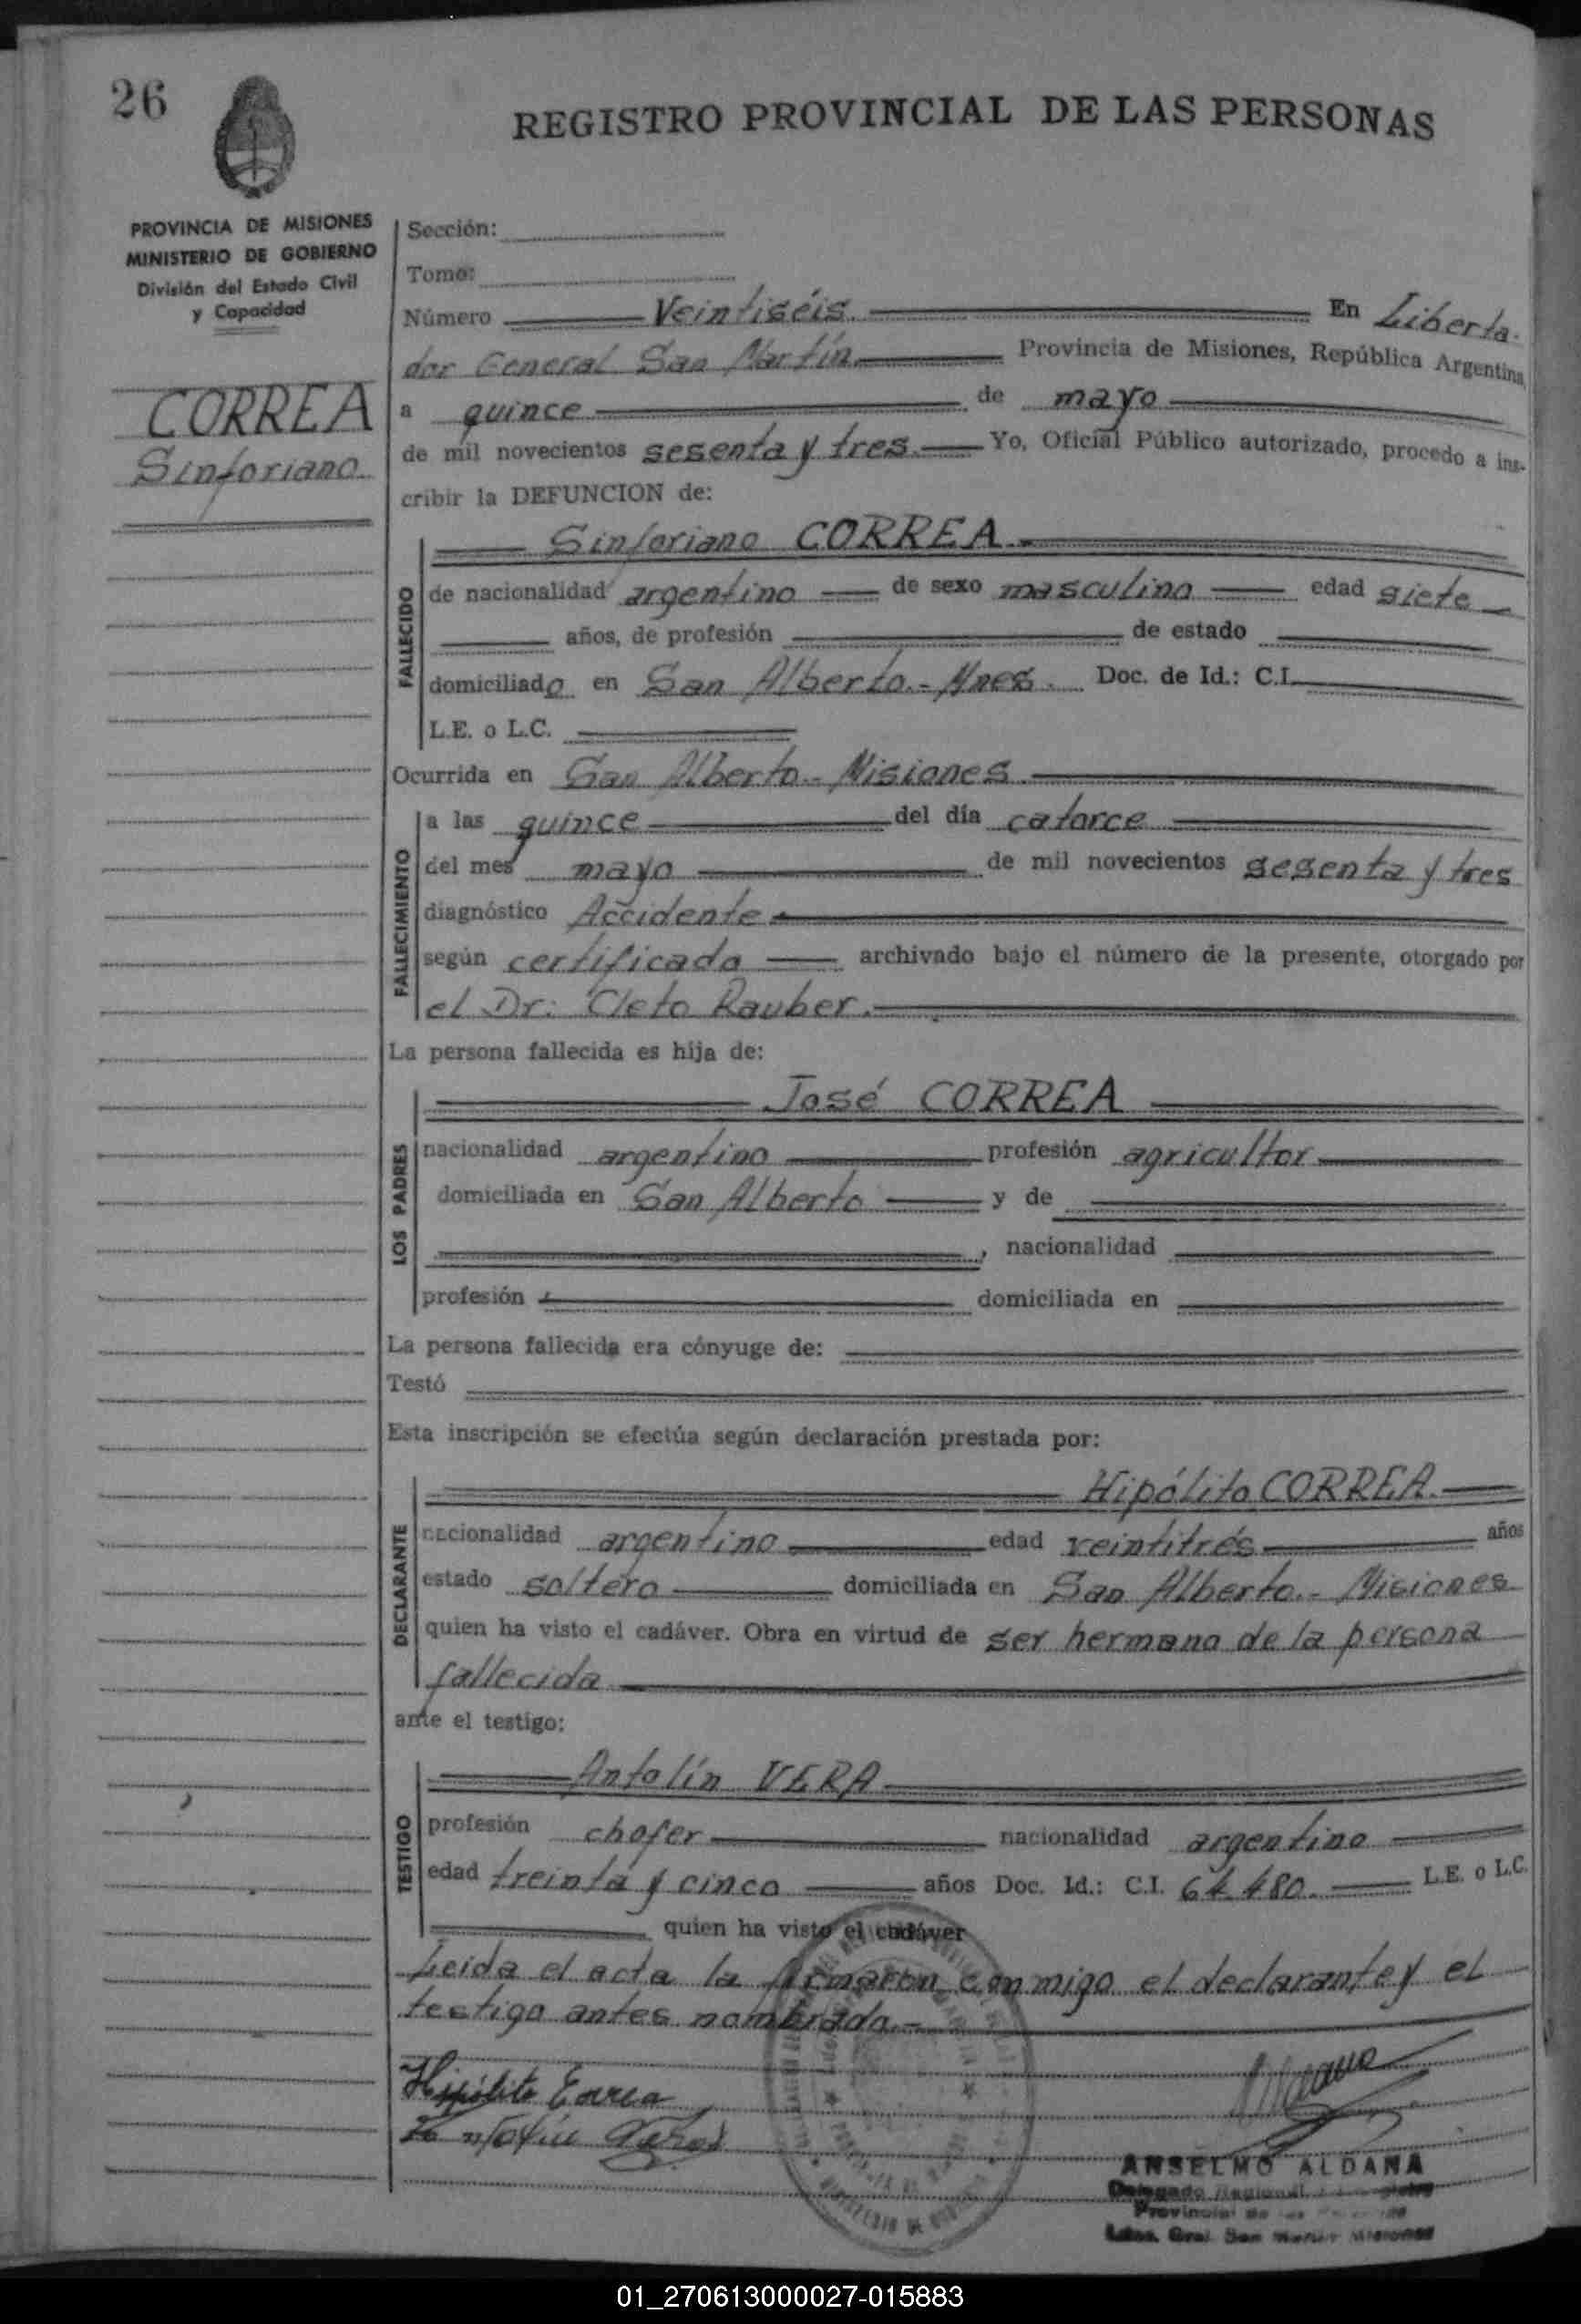 26
REGISTRO PROVINCIAL DE LAS PERSONAS
PROVINCIA DE MISIONES
MINISTERIO DE GOBIERNO
División del Estado Civil
y Capacidad
CORREA
Sinforiano
Sección:
Tomo:
Número Veintiséis. En Liberta-
dor General San Martín Provincia de Misiones, República Argentina
a quince de mayo
de mil novecientos sesenta y tres. Yo, Oficial Público autorizado, procedo a ins-
cribir la DEFUNCION de:
FALLECIDO
Sinforiano CORREA.
de nacionalidad argentino de sexo masculino edad siete
años, de profesión de estado
domiciliado en San Alberto.- Mnes. Doc. de Id.: C.I.
L.E. o L.C.
Ocurrida en San Alberto.- Misiones
FALLECIMIENTO
a las quince del día catorce
del mes mayo de mil novecientos sesenta y tres
diagnóstico Accidente
según certificado archivado bajo el número de la presente, otorgado por
el Dr: Cleto Rauber.
La persona fallecida es hija de:
LOS PADRES
José CORREA
nacionalidad argentino profesión agricultor
domiciliada en San Alberto y de
, nacionalidad
profesión domiciliada en
La persona fallecida era cónyuge de:
Testó
Esta inscripción se efectúa según declaración prestada por:
DECLARANTE
Hipólito CORREA.
nacionalidad argentino edad veintitrés años
estado soltero domiciliada en San Alberto.- Misiones
quien ha visto el cadáver. Obra en virtud de ser hermano de la persona
fallecida
ante el testigo:
TESTIGO
Antolín VERA
profesión chofer nacionalidad argentino
edad treinta y cinco años Doc. Id.: C.I. 64.480. L.E. o L.C.
quien ha visto el cadáver
Leida el acta la firmaron conmigo el declarante y el
testigo antes nombrado.-
Hipólito Correa
ANSELMO ALDANA
Delegado Regional
Provincial de las
Ldor. Gral. San Martín Misiones
01_270613000027-015883